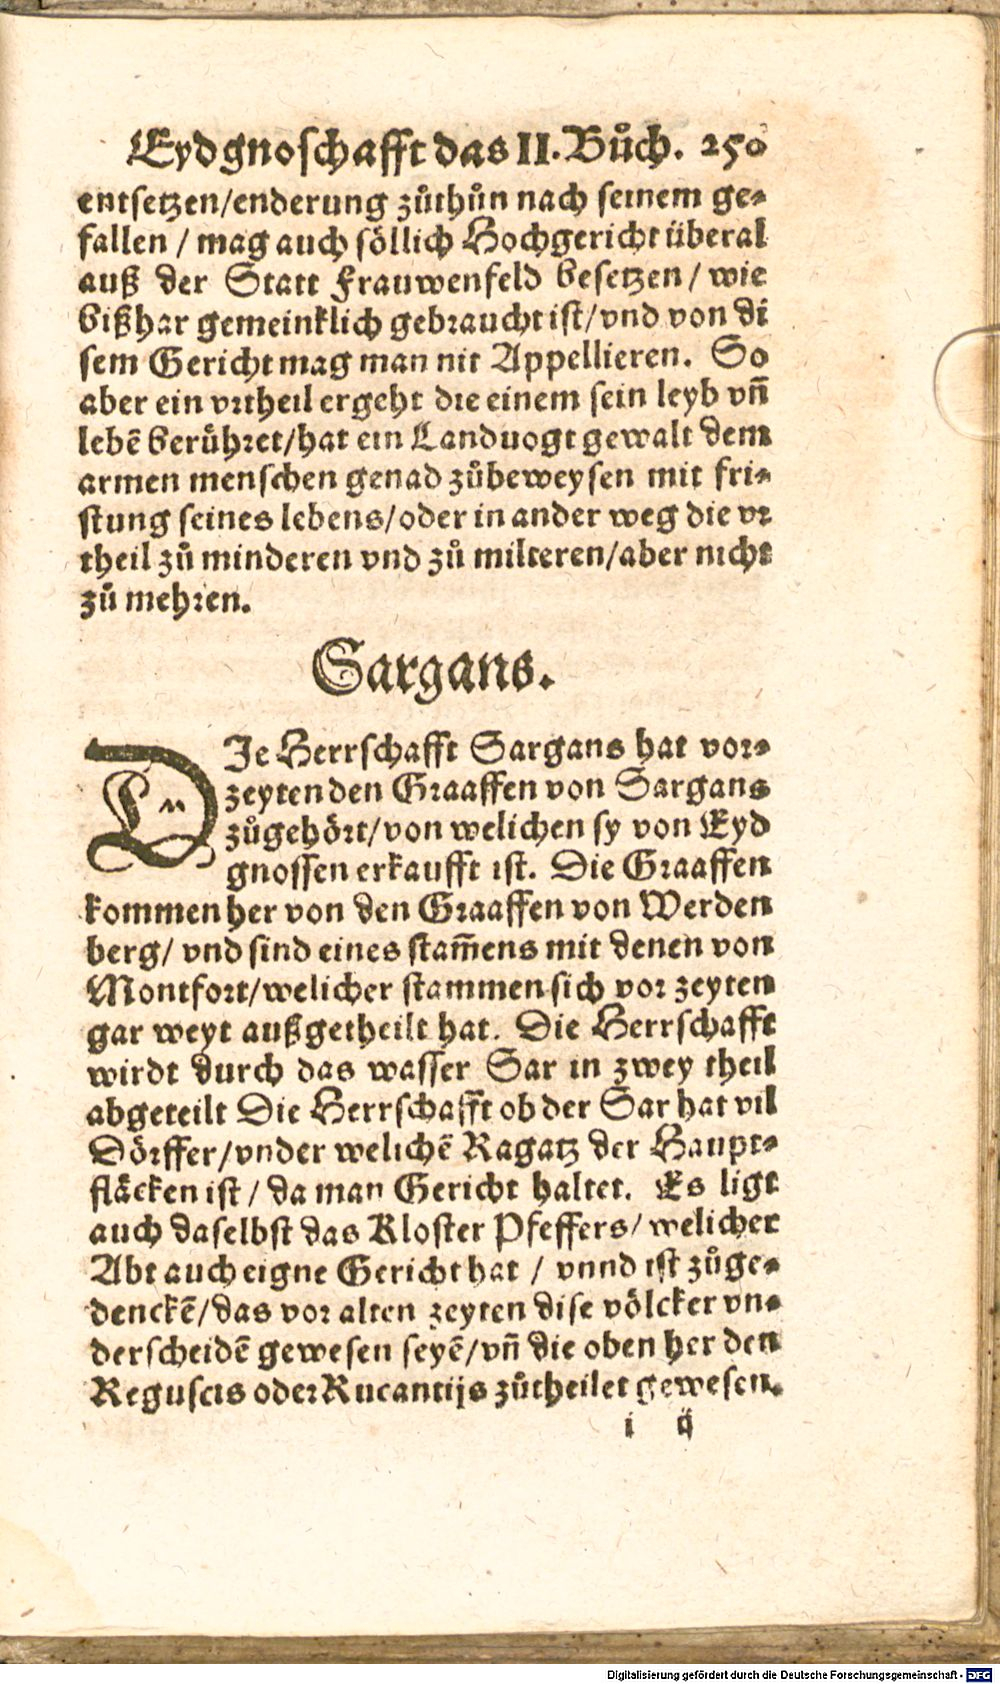 Eydgnoschafft das II. Bůch. 250
entsetzen/enderung zůthůn nach seinem ge-
fallen / mag auch söllich Hochgericht überal
auß der Statt Frauwenfeld besetzen / wie
bißhar gemeinklich gebraucht ist/vnd von di
sem Gericht mag man nit Appellieren. So
aber ein vrtheil ergeht die einem sein leyb vñ
lebẽ berühret/hat ein Landuogt gewalt dem
armen menschen genad zůbeweysen mit fri-
stung seines lebens/oder in ander weg die vr
theil zů minderen vnd zů milteren/aber nicht
zů mehren.
Sargans.
DIe Herrschafft Sargans hat vor-
zeyten den Graaffen von Sargans
zůgehört/von welichen sy von Eyd
gnossen erkaufft ist. Die Graaffen
kommen her von den Graaffen von Werden
berg/ vnd sind eines stam̃ens mit denen von
Montfort/welicher stammen sich vor zeyten
gar weyt außgetheilt hat. Die Herrschafft
wirdt durch das wasser Sar in zwey theil
abgeteilt Die Herrschafft ob der Sar hat vil
Dörffer/vnder welichẽ Ragatz der Haupt-
fläcken ist / da man Gericht haltet. Es ligt
auch daselbst das Kloster Pfeffers/ welicher
Abt auch eigne Gericht hat / vnnd ist zůge-
denckẽ/das vor alten zeyten dise völcker vn-
derscheidẽ gewesen seyẽ/vñ die oben her den
Reguscis oder Rucantijs zůtheilet gewesen.
i ij
Digitalisierung gefördert durch die Deutsche Forschungsgemeinschaft - DFG